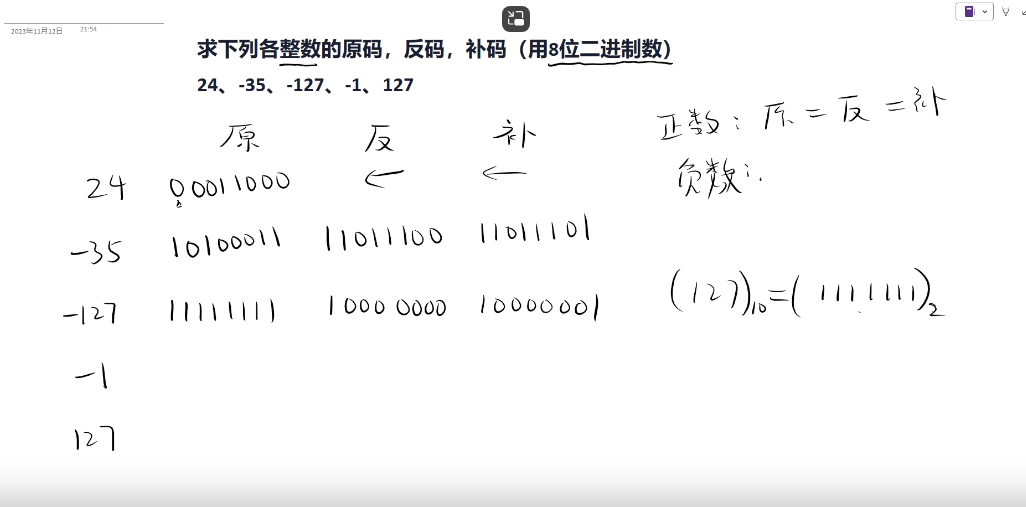 2023年11月12日 21:54
求下列各整数的原码，反码，补码（用8位二进制数）
24、-35、-127、-1、127
正数：原=反=补
原 反 补
负数：
24 00011000 ← ←
-35 10100011 11011100 11011101
-127 11111111 10000000 10000001
(127)10=(1111111)2
-1
127